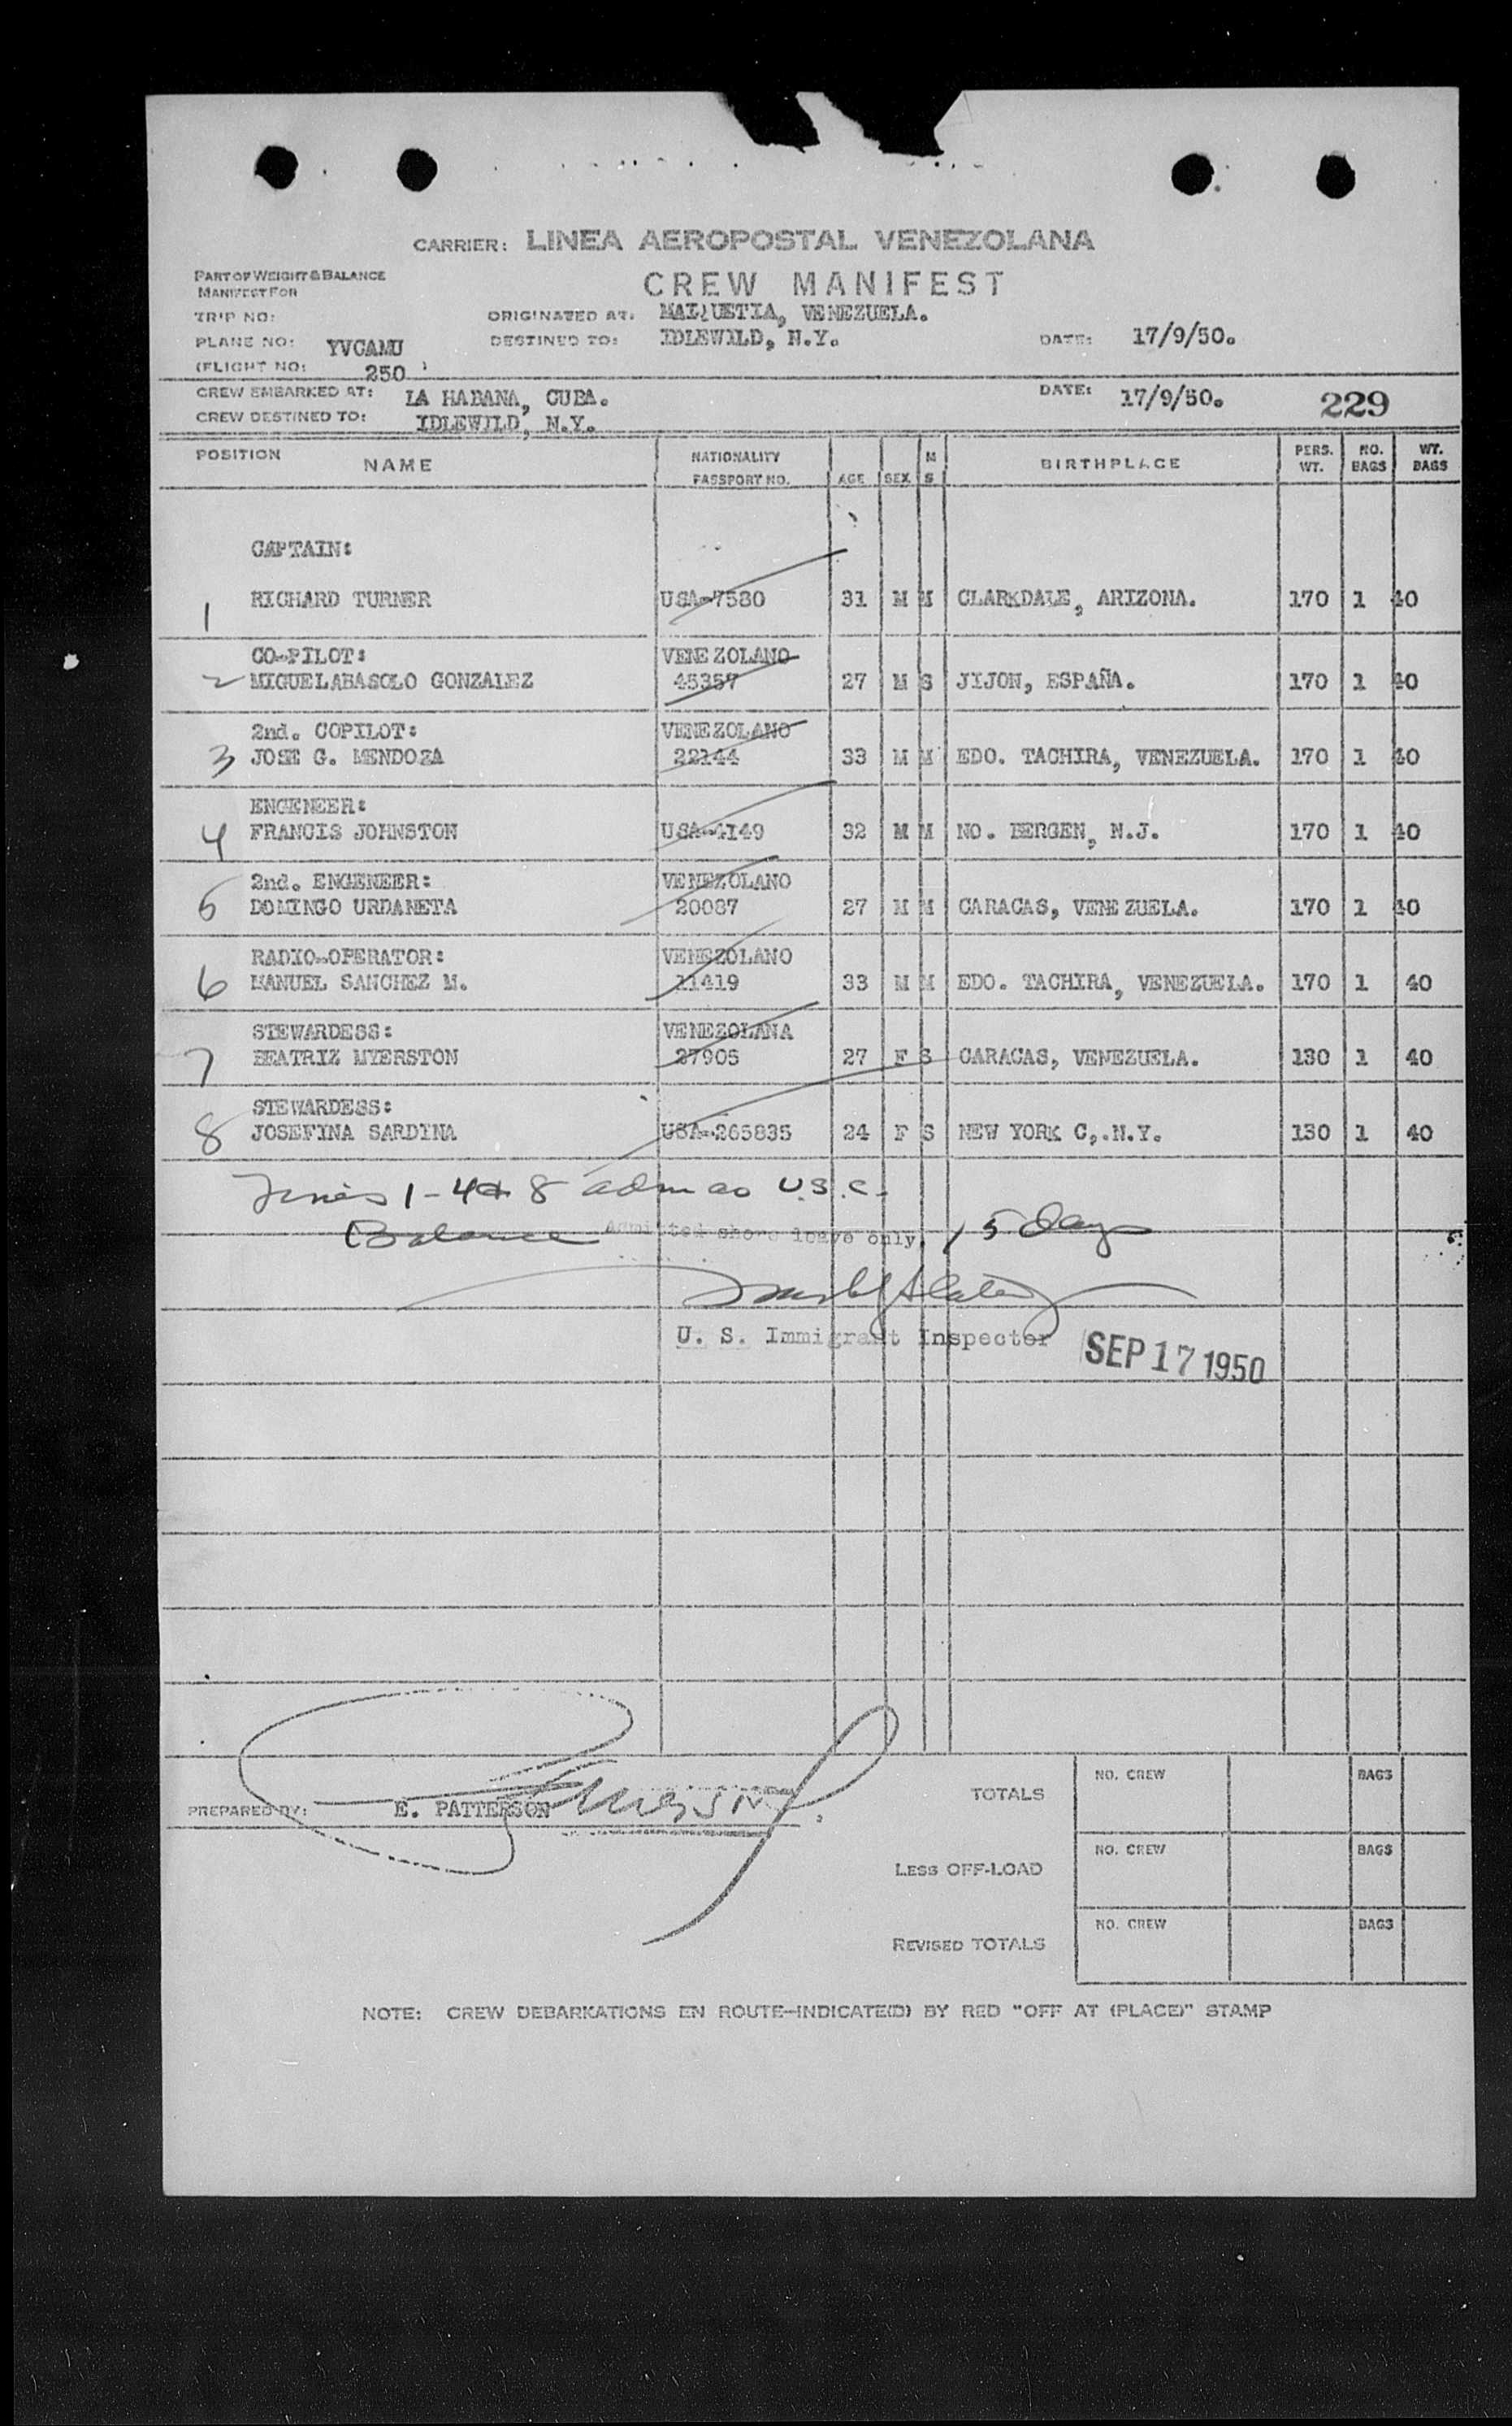 CARRIER: LINEA AEROPOSTAL VENEZOLANA
PART OF WEIGHT & BALANCE
MANIFEST FOR
CREW MANIFEST
TRIP NO: ORIGINATED AT: MAIQUETIA, VENEZUELA.
PLANE NO: YVCAMU DESTINED TO: IDLEWILD, N.Y. DATE: 17/9/50.
(FLIGHT NO: 250 )
CREW EMBARKED AT: LA HABANA, CUBA. DATE: 17/9/50. 229
CREW DESTINED TO: IDLEWILD, N.Y.
POSITION NAME NATIONALITY PASSPORT NO. AGE SEX M S BIRTHPLACE PERS. WT. NO. BAGS WT. BAGS
CAPTAIN:
1 RICHARD TURNER USA-7580 31 M M CLARKDALE, ARIZONA. 170 1 40
CO-PILOT: VENEZOLANO
2 MIGUELABASOLO GONZALEZ 45357 27 M S JIJON, ESPAÑA. 170 1 40
2nd. COPILOT: VENEZOLANO
3 JOSE G. MENDOZA 22144 33 M M EDO. TACHIRA, VENEZUELA. 170 1 40
ENGENEER:
4 FRANCIS JOHNSTON USA-4149 32 M M NO. BERGEN, N.J. 170 1 40
2nd. ENGENEER: VENEZOLANO
5 DOMINGO URDANETA 20087 27 M M CARACAS, VENEZUELA. 170 1 40
RADIO-OPERATOR: VENEZOLANO
6 MANUEL SANCHEZ M. 11419 33 M M EDO. TACHIRA, VENEZUELA. 170 1 40
STEWARDESS: VENEZOLANA
7 BEATRIZ MYERSTON 27905 27 F S CARACAS, VENEZUELA. 130 1 40
STEWARDESS:
8 JOSEFINA SARDINA USA-265835 24 F S NEW YORK C,.N.Y. 130 1 40
Lines 1-4 & 8 adm as U.S.C.
Balance Admitted shore leave only, 15 days
U. S. Immigrant Inspector SEP 17 1950
PREPARED BY: E. PATTERSON
TOTALS NO. CREW BAGS
LESS OFF-LOAD NO. CREW BAGS
REVISED TOTALS NO. CREW BAGS
NOTE: CREW DEBARKATIONS EN ROUTE—INDICATE(D) BY RED "OFF AT (PLACE)" STAMP